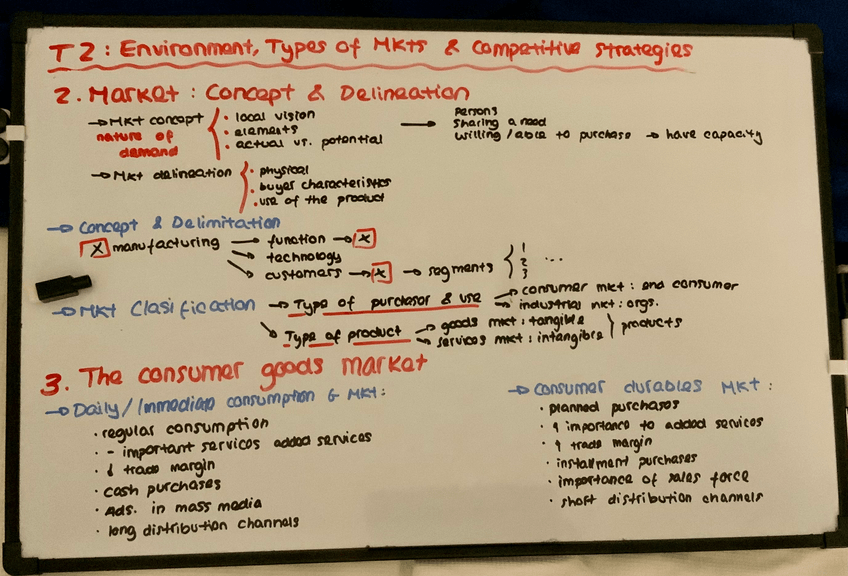 T2: Environment, Types of MKTs & Competitive strategies
2. Market: Concept & Delineation
→ MKT concept { · local vision
nature of demand · elements → Persons
· actual vs. potential Sharing a need
willing / able to purchase → have capacity
→ MKT delineation { · physical
· buyer characteristics
· use of the product
→ Concept & Delimitation
X manufacturing → function → X
→ technology
→ customers → X → segments { 1 2 3 ...
→ MKT Clasification → Type of purchasor & use → consumer mkt: end consumer
→ industrial mkt: orgs.
→ Type of product → goods mkt: tangible
→ services mkt: intangible } products
3. The consumer goods market
→ Daily/Immediate consumption G MKT:
· regular consumption
· - important services added services
· ↓ trade margin
· cash purchases
· Ads. in mass media
· long distribution channels
→ Consumer durables MKT:
· planned purchases
· ↑ importance to added services
· ↑ trade margin
· installment purchases
· importance of sales force
· short distribution channels